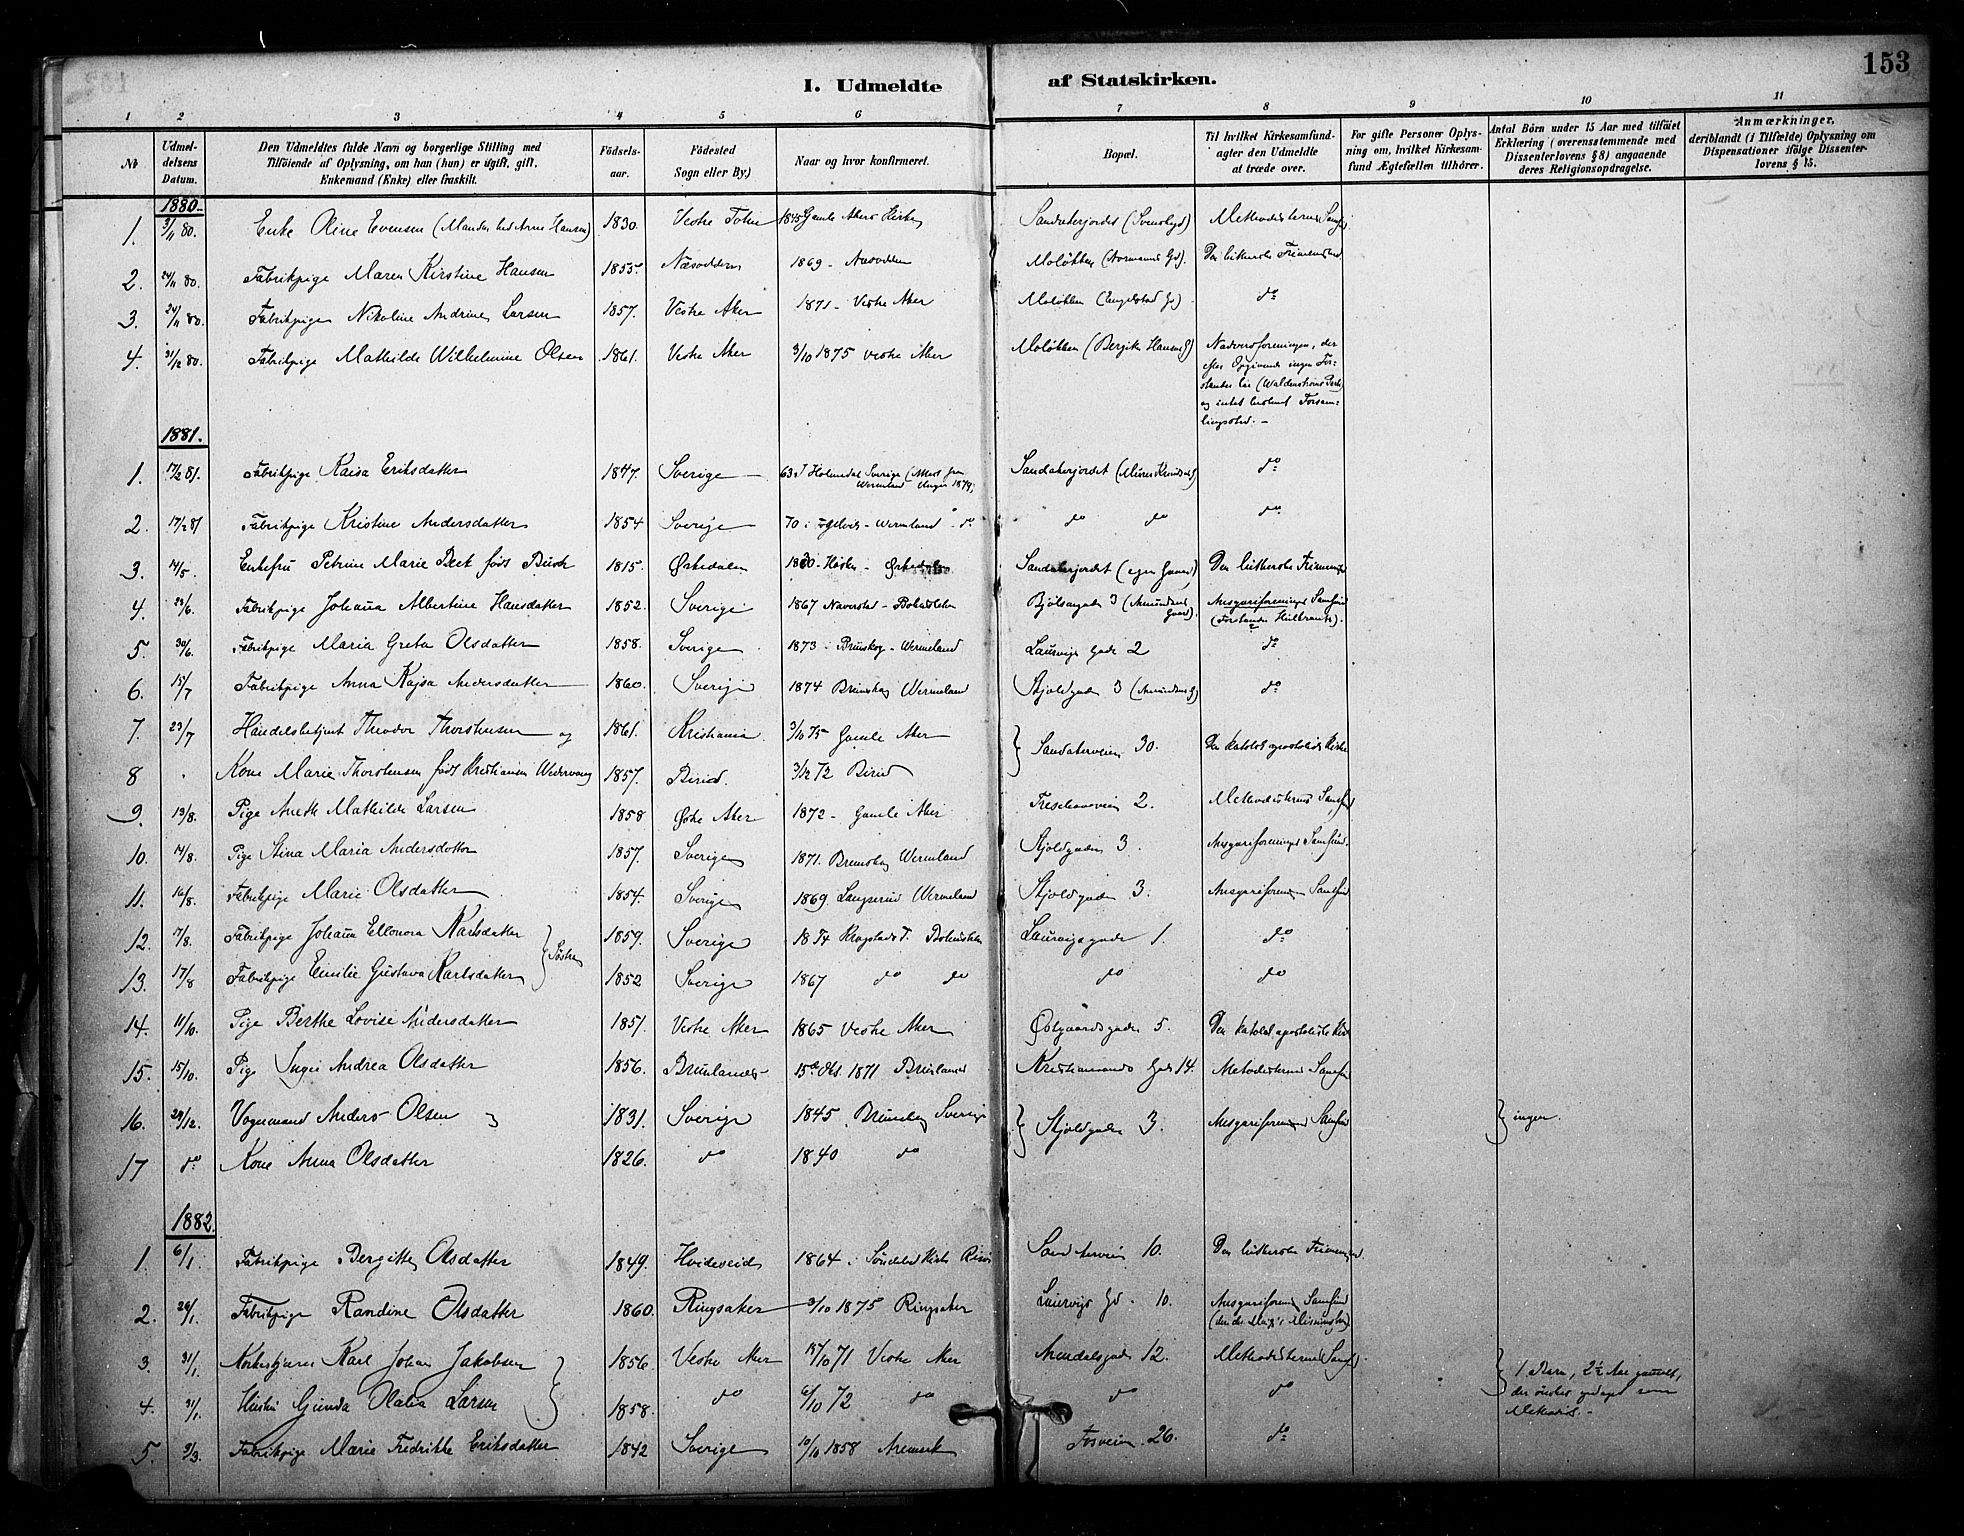 153
I. Udmeldte af Statskirken.
1 2 3 4 5 6 7 8 9 10 11
No
Udmeldelsens Datum.
Den Udmeldtes fulde Navn og borgerlige Stilling med Tilföiende af Oplysning, om han (hun) er ugift, gift, Enkemand (Enke) eller fraskilt.
Födselsaar.
Födested Sogn eller By.)
Naar og hvor konfirmeret.
Bopæl.
Til hvilket Kirkesamfund agter den Udmeldte at træde over.
For gifte Personer Oplysning om, hvilket Kirkesamfund Ægtefællen tilhörer.
Antal Börn under 15 Aar med tilföiet Erklæring (overensstemmende med Dissenterlovens § 8) angaaende deres Religionsopdragelse.
Anmærkninger, deriblandt (i Tilfælde) Oplysning om Dispensationer ifölge Dissenterlovens § 15.
1880.
1. 3/11 80. Enke Oline Evensen (Manden hed Arne Hansen) 1830. Vestre Toten 1845 Gamle Akers Kirke Sandakerjordet Methodisternes Samf
2. 24/11 80. Fabrikpige Maren Kirstine Hansen 1855 Næsodden 1869 - Næsodden Moløkken Den lutherske Frimenighed
3. 24/11 80. Fabrikpige Nikoline Andrine Larsen 1857. Vestre Aker 1871 - Vestre Aker Moløkken (Engelstad Gd) do
4. 31/12 80. Fabrikpige Mathilde Wilhelmine Olsen 1861. Vestre Aker 3/10 1875 Vestre Aker Moløkken Nadverforeningen, der
efter Opgivende ingen For=
stander har (Waldenströms Parti)
og intet bestemt Forsam=
lingssted. -
1881.
1. 17/2 81. Fabrikpige Kaisa Eriksdatter 1847. Sverige 63 i Holmedal Sverige Wermland Sandakerjordet do
2. 17/2 81 Fabrikpige Kristine Andersdatter 1854 Sverige 70 i Wermland do do do do
3. 14/5. Enkefru Petrine Marie Beck født Busch 1815. Ørkedalen 1830 - Ørkedalen Sandakerjordet (egen Gaard) Den lutherske Frimenigh
4. 23/6. Fabrikpige Johanna Albertine Hansdatter 1852. Sverige 1867 Naverstad - Bohuslehn Bjølsengaden 3 (Amundsens Gaard). Ansgariforeningens Samfund
(Forstander Hülbrandt).
5. 30/6. Fabrikpige Maria Greta Olsdatter 1858. Sverige 1873 - Brunskog - Wermeland Laurvigs Gade 2 do
6. 15/7 Fabrikpige Anna Kajsa Andersdatter 1860. Sverige 1874 Brunskog Wermeland Skjoldgaden 3 do
7. 23/7 Handelsbetjent Theodor Thorstensen og 1861. Kristiania 3/10 75 Gamle Aker Sandakerveien 30. Den katolsk apostoliske Kirke
8 Kone Marie Thorstensen født Kristiansen Wedervang 1857. Birid. 3/12 72 Birid
9. 13/8. Pige Anette Mathilde Larsen 1858 Østre Aker 1872 - Gamle Aker Treschowsveien 2. Methodisternes Samf
10. 14/8. Pige Stina Maria Andersdotter 1857. Sverige 1871. Brunskog Wermland Skjoldgaden 3. Ansgariforenings Samfund.
11. 16/8. Fabrikpige Marie Olsdatter 1854. Sverige 1869. Langserud Wermeland Skjoldgaden 3. Ansgariforenin Samfund
12. 17/8. Fabrikpige Johanna Ellonora Karlsdatter Søstre 1859. Sverige 1874 Krogstad Bohuslehn Laurvigsgade 1. do
13. 17/8 Fabrikpige Emilie Gustava Karlsdatter 1852 Sverige 1867 do do do do
14. 11/10. Pige Berthe Lovise Andersdatter 1851. Vestre Aker 1865 Vestre Aker Østgaardsgaden 5. Den katolsk apostoliske Kirk
15. 15/10. Pige Inger Andrea Olsdatter 1856. Brunlanes 15de Oct. 1871 Brunlanes Kristiansands Gade 14. Metodisternes Samfun
16. 29/12. Vognmand Anders Olsen 1831. Sverige 1845. Brunskog Sverige Skjoldgaden 3. Ansgariforenin Samfund ingen.
17 do Kone Anna Olsdatter 1826. do 1840 do
1882.
1. 6/1. Fabrikpige Bergitte Olsdatter 1849. Hvideseid 1864 i Søndeled Kirke Risør Sandakerveien 10. Den lutherske Frimenigh
2. 20/1. Fabrikpige Randine Olsdatter 1860. Ringsaker 3/10 1875 Ringsaker Laurvigs Gd. 10. Ansgariforenin Samfund
3. 31/1. Karl Johan Jakobsen 1856. Vestre Aker 15/10 71 Vestre Aker Arendalsgade 12. Methodisternes Samf. 1 Barn, 2½ Aar gammelt,
4. 31/1. Hustru Gunda Olalia Larsen 1858. do 6/10 72 do do do der ønskes opdraget som
Methodist. -
5. 3/3. Fabrikpige Marie Fredrikke Eriksdatter 1842 Sverige 10/10 1858 Aremark Fosveien 26. do